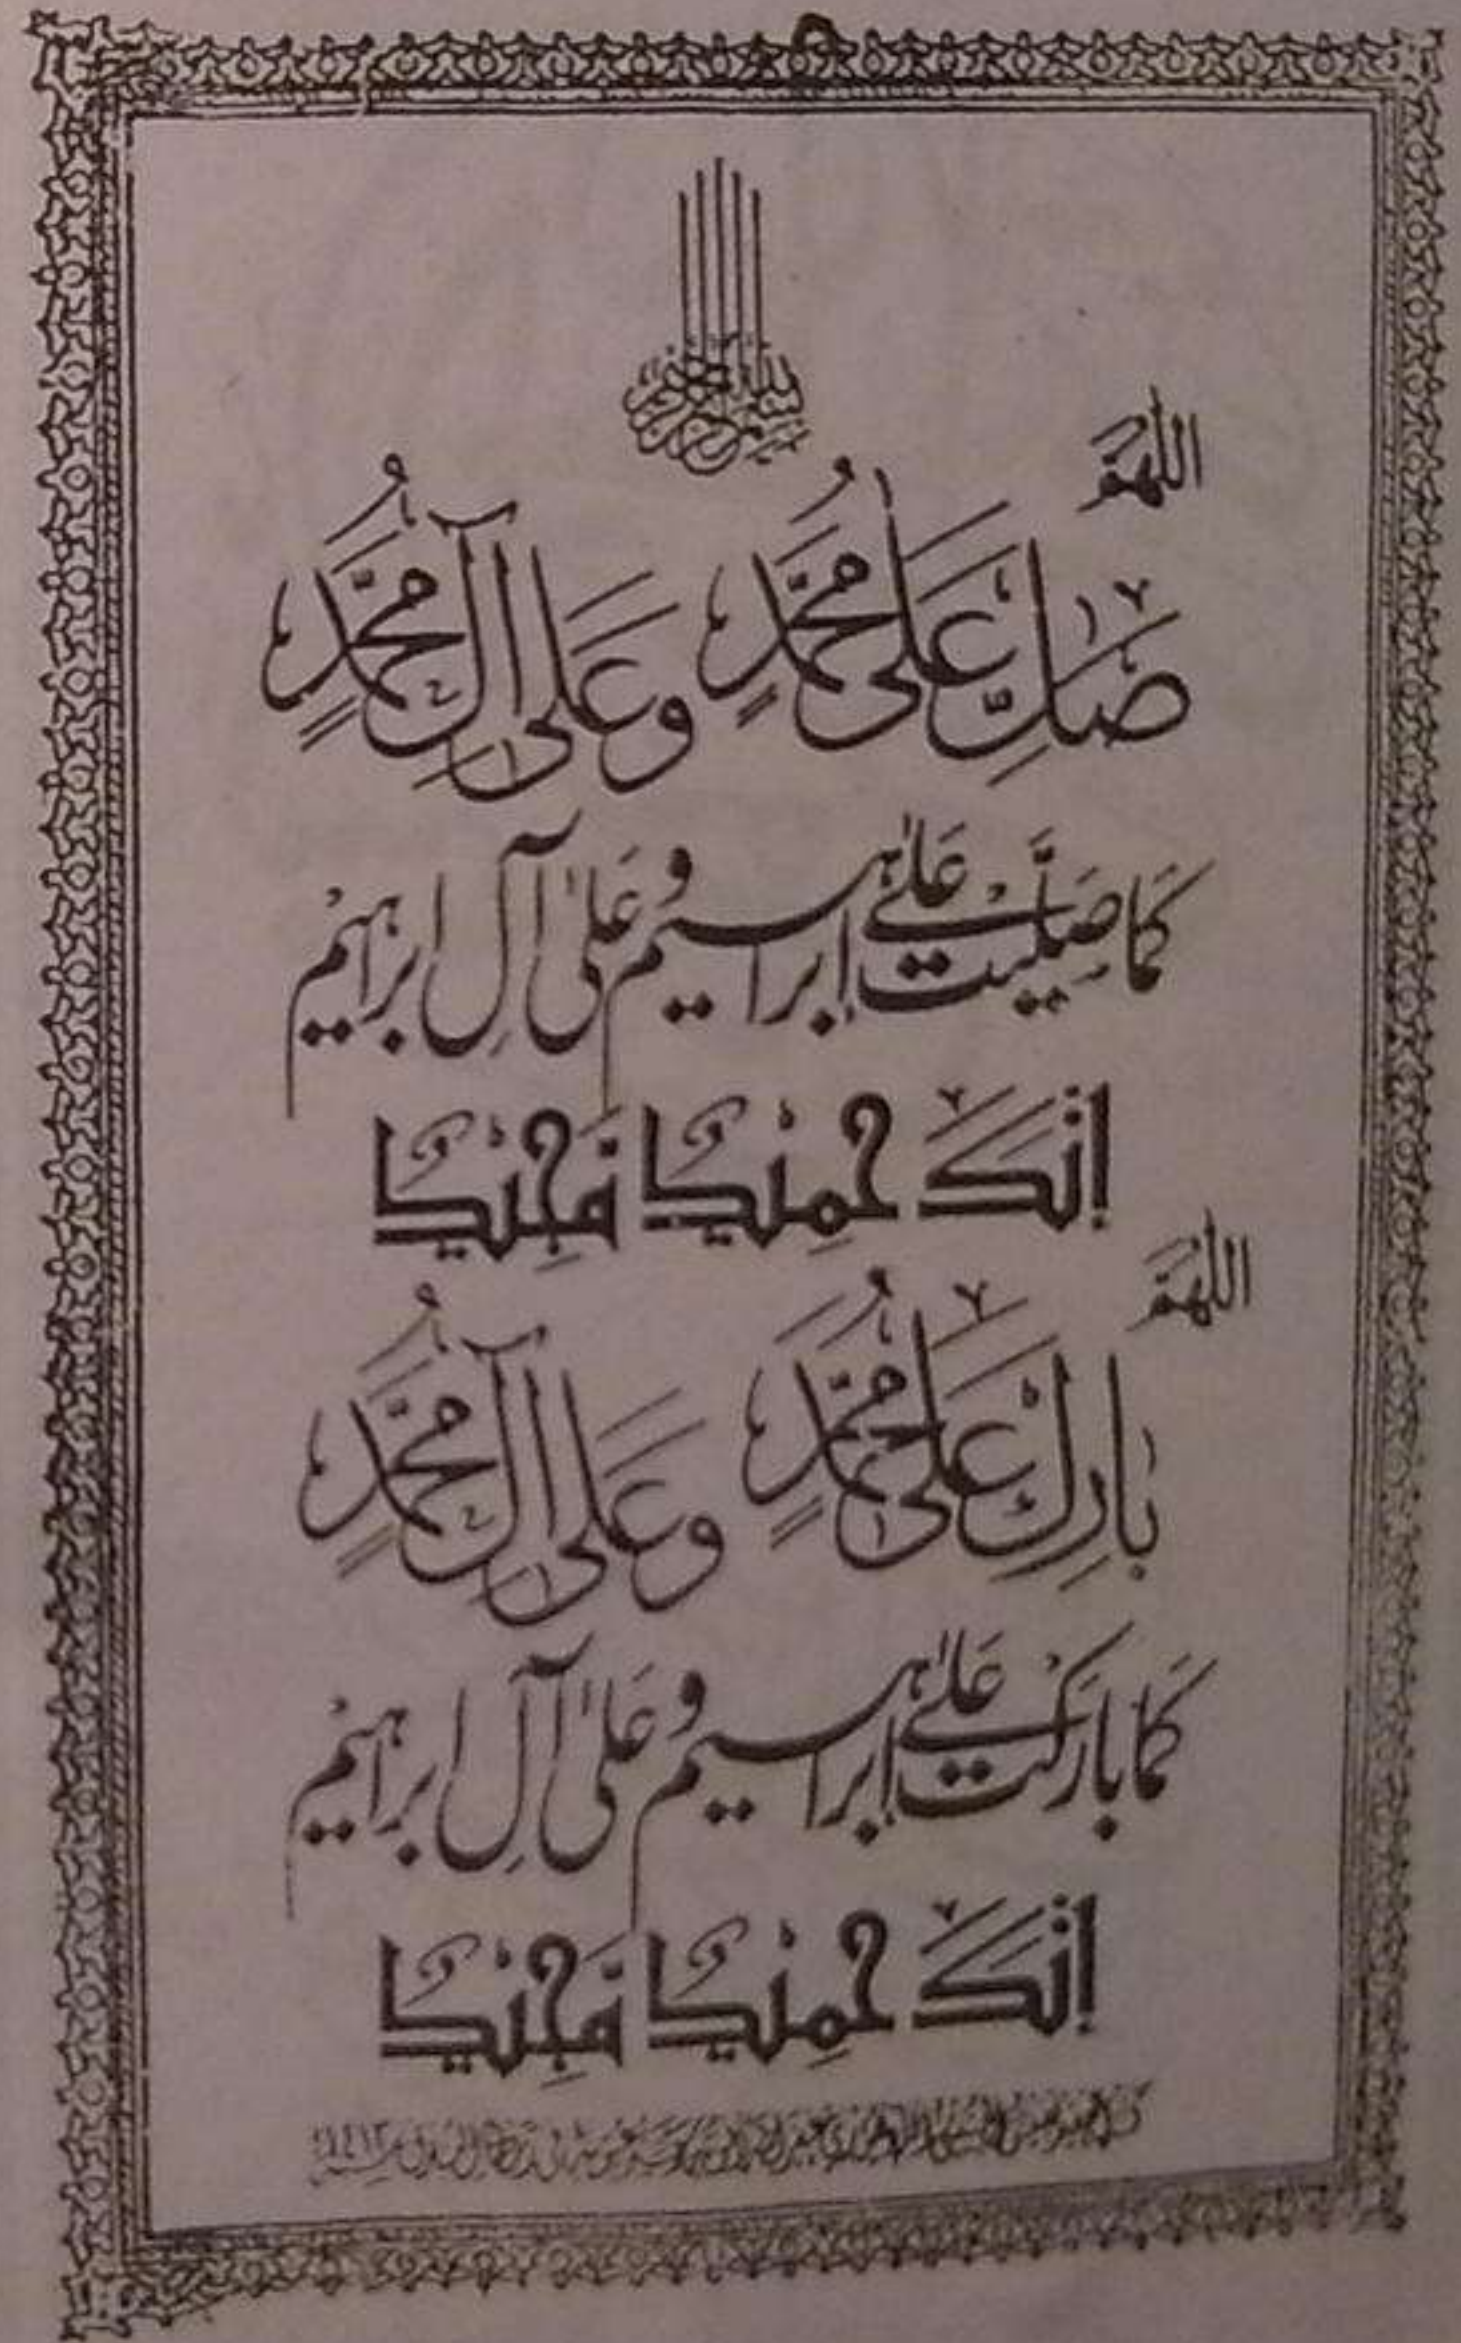 بسم الله الرحمن الرحيم
اللهم
صَلِّ عَلٰى مُحَمَّدٍ وعَلٰى آلِ مُحَمَّدٍ
كَمَا صَلَّيْتَ عَلٰى اِبراہیم وَعَلٰى آلِ ابراہیم
اِنَّكَ حَمِيْدٌ مَّجِيْدٌ
اللهم
بَارِكْ عَلٰى مُحَمَّدٍ وعَلٰى آلِ مُحَمَّدٍ
كَمَا بَارَكْتَ عَلٰى اِبراہیم وَعَلٰى آلِ ابراہیم
اِنَّكَ حَمِيْدٌ مَّجِيْدٌ